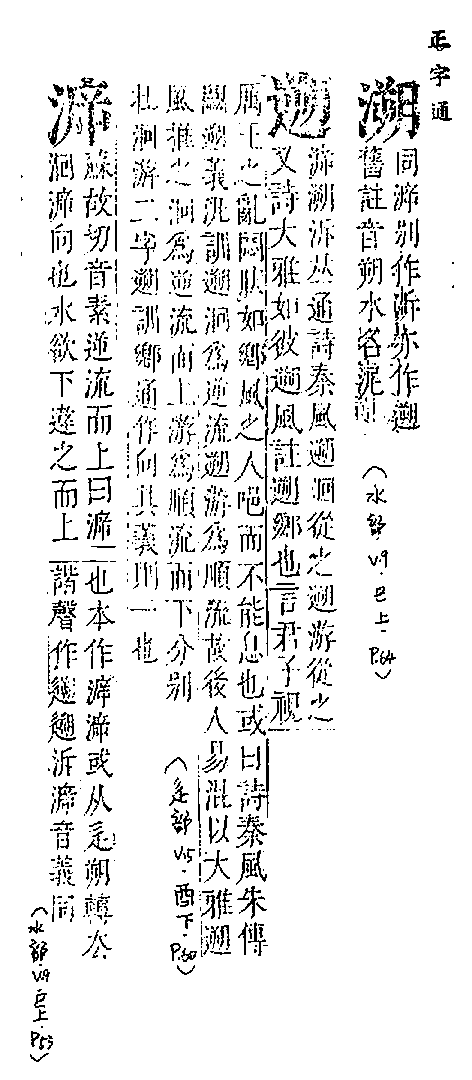 正字通
溯 同㴑別作泝亦作遡
舊註音朔水名泥
(水部 V.9·巳上·P.64)
遡 㴑溯泝𠀤通詩秦風遡洄從之遡游從之
又詩大雅如彼遡風註遡鄉也言君子視
厲王之亂悶然如鄉風之人唈而不能息也或曰詩秦風朱傳
遡義汎訓遡洄爲逆流遡游爲順流故後人易混以大雅遡
風推之洄爲逆流而上游爲順流而下分別
在洄游二字遡訓鄉通作向其義則一也
(辵部 V.15·酉下·P.30)
㴑 蘇故切音素逆流而上曰㴑
洄㴑向也水欲下違之而上
也本作㴑或从辵朔
諧聲作遡泝㴑音義同
(水部·V.9·巳上·P.53)